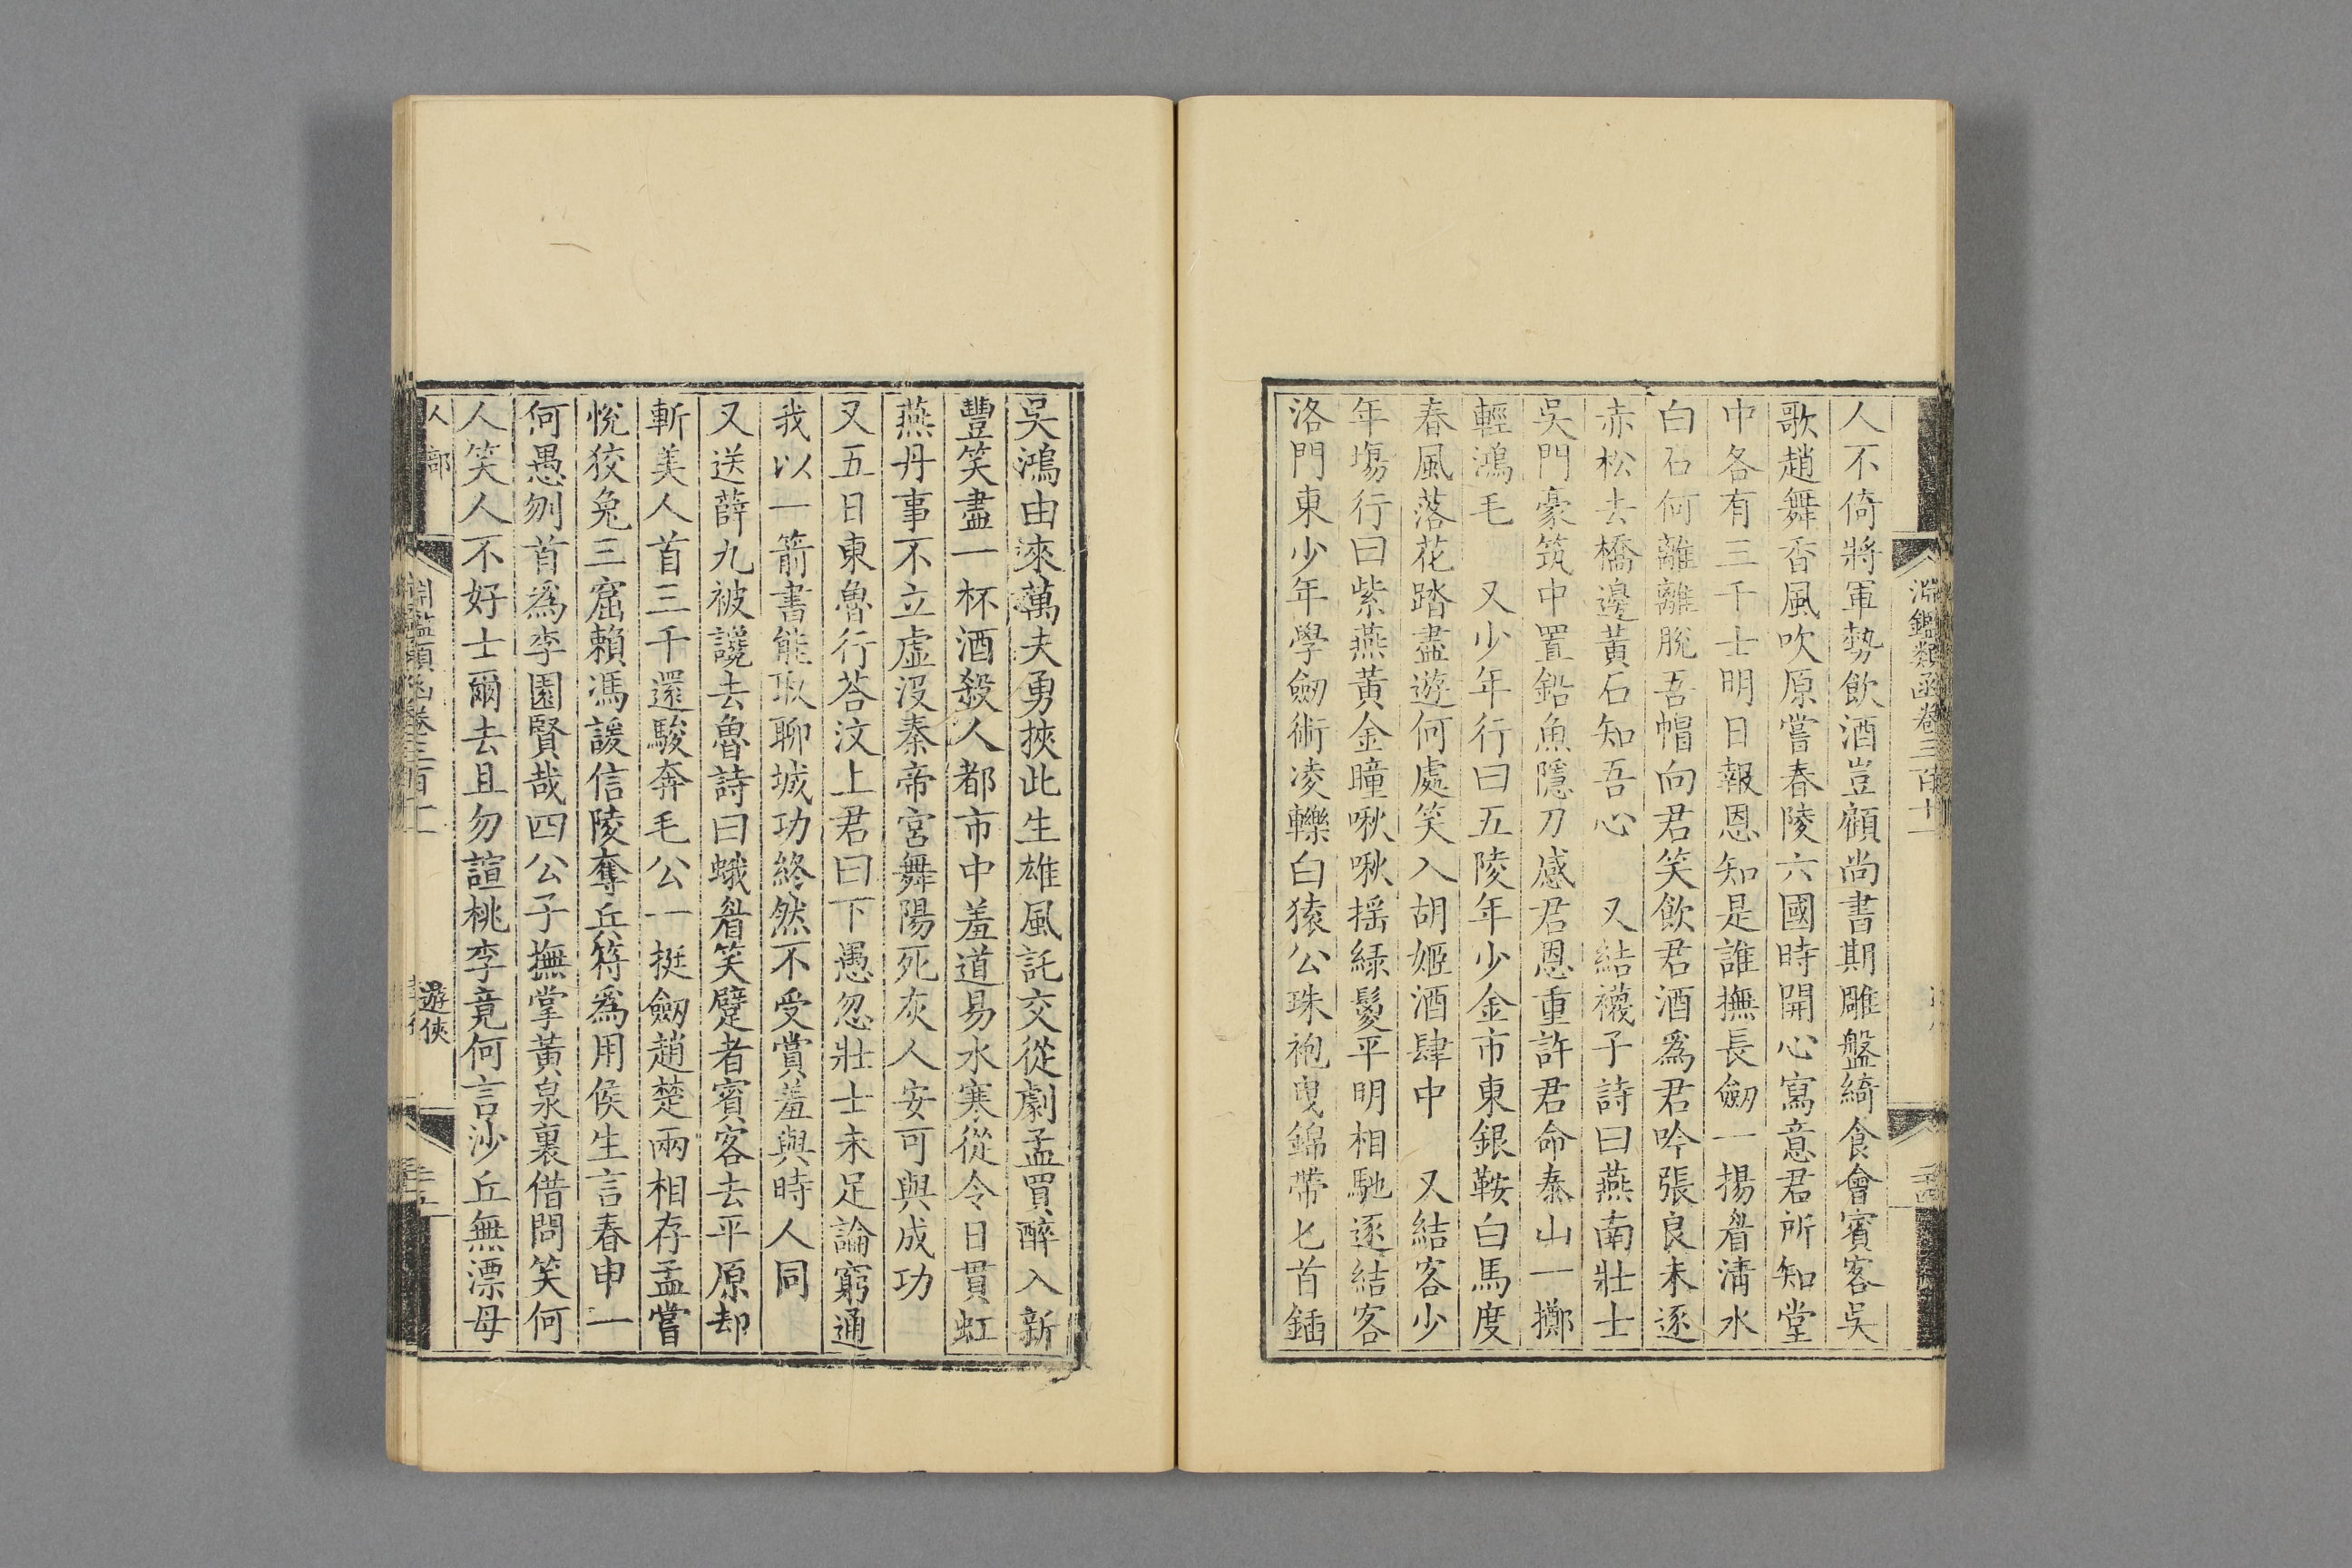 淵鑑類函卷三百十一
人不倚將軍勢飲酒豈顧尚書期雕盤綺食會賓客吳
歌趙舞香風吹原嘗春陵六國時開心寫意君所知堂
中各有三千士明日報恩知是誰撫長劒一揚眉淸水
白石何離離脫吾帽向君笑飲君酒爲君吟張良未逐
赤松去橋邊黃石知吾心　又結襪子詩曰燕南壯士
吳門豪筑中置鉛魚隱刀感君恩重許君命泰山一擲
輕鴻毛　又少年行曰五陵年少金市東銀鞍白馬度
春風落花踏盡遊何處笑入胡姬酒肆中　又結客少
年塲行曰紫燕黃金瞳啾啾揺綠鬉平明相馳逐結客
洛門東少年學劒術凌轢白猿公珠袍曳錦帶匕首鍤
吳鴻由來萬夫勇挾此生雄風託交從劇孟買醉入新
豐笑盡一杯酒殺人都市中羞道易水寒從令日貫虹
燕丹事不立虛沒秦帝宮舞陽死灰人安可與成功
又五日東魯行荅汶上君曰下愚忽壯士未足論窮通
我以一箭書能取聊城功終然不受賞羞與時人同
又送薛九被讒去魯詩曰蛾眉笑躄者賓客去平原却
斬美人首三千還駿奔毛公一挺劒趙楚兩相存孟嘗
悅狡兔三窟賴馮諼信陵奪兵符爲用侯生言春申一
何愚刎首爲李園賢哉四公子撫掌黃泉裏借問笑何
人笑人不好士爾去且勿諠桃李竟何言沙丘無漂母
人部
遊俠